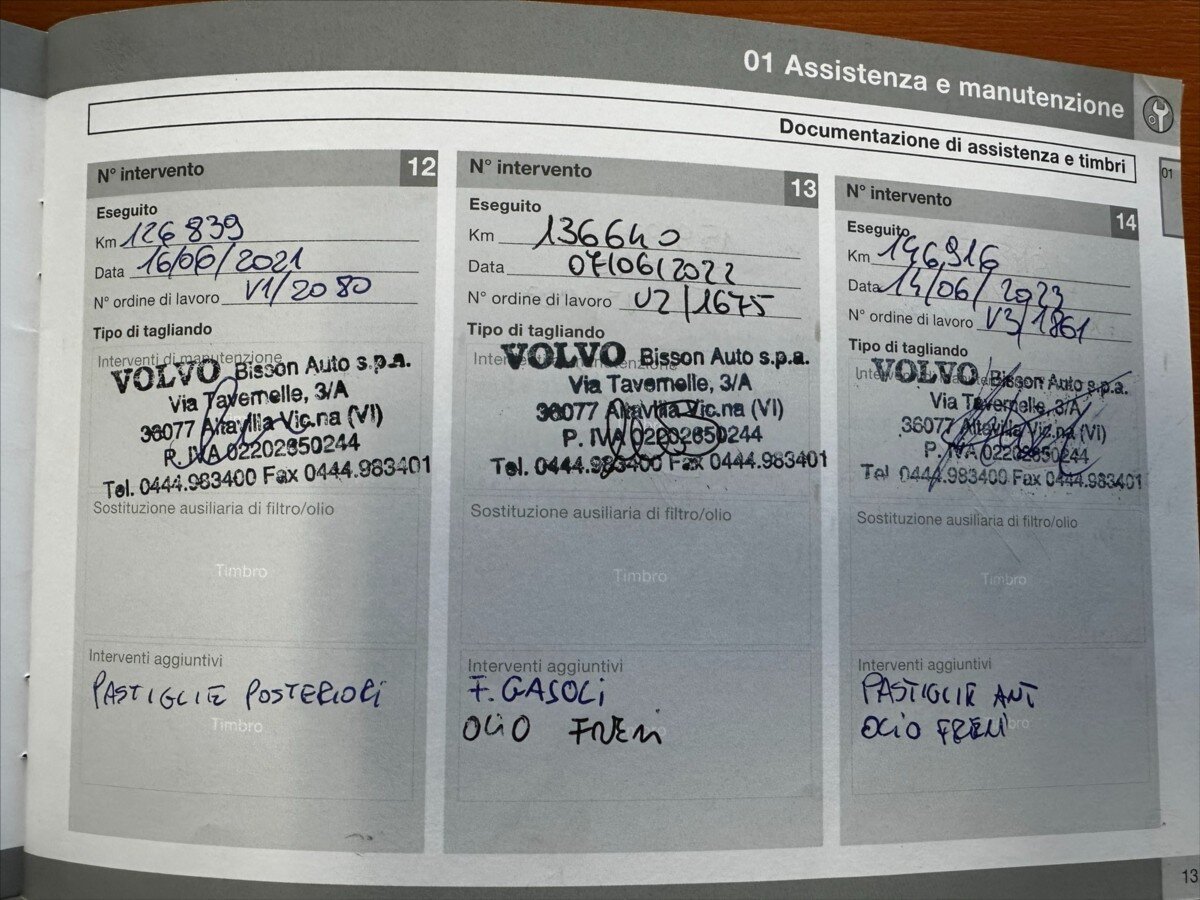 01 Assistenza e manutenzione
Documentazione di assistenza e timbri
01
N° intervento 12
Eseguito
Km 126839
Data 16/06/2021
N° ordine di lavoro V1/2080
Tipo di tagliando
Interventi di manutenzione
VOLVO Bisson Auto s.p.a.
Via Tavernelle, 3/A
36077 Altavilla Vic.na (VI)
P. IVA 02202850244
Tel. 0444.983400 Fax 0444.983401
Sostituzione ausiliaria di filtro/olio
Timbro
Interventi aggiuntivi
PASTIGLIE POSTERIORI
Timbro
N° intervento 13
Eseguito
Km 136640
Data 07/06/2022
N° ordine di lavoro V2/1675
Tipo di tagliando
VOLVO Bisson Auto s.p.a.
Via Tavernelle, 3/A
36077 Altavilla Vic.na (VI)
P. IVA 02202850244
Tel. 0444.983400 Fax 0444.983401
Sostituzione ausiliaria di filtro/olio
Timbro
Interventi aggiuntivi
F. GASOLI
OLIO FRENI
N° intervento 14
Eseguito
Km 146916
Data 14/06/2023
N° ordine di lavoro V3/1861
Tipo di tagliando
VOLVO Bisson Auto s.p.a.
Via Tavernelle, 3/A
36077 Altavilla Vic.na (VI)
P. IVA 02202850244
Tel 0444.983400 Fax 0444.983401
Sostituzione ausiliaria di filtro/olio
Timbro
Interventi aggiuntivi
PASTIGLIE ANT
OLIO FRENI
13